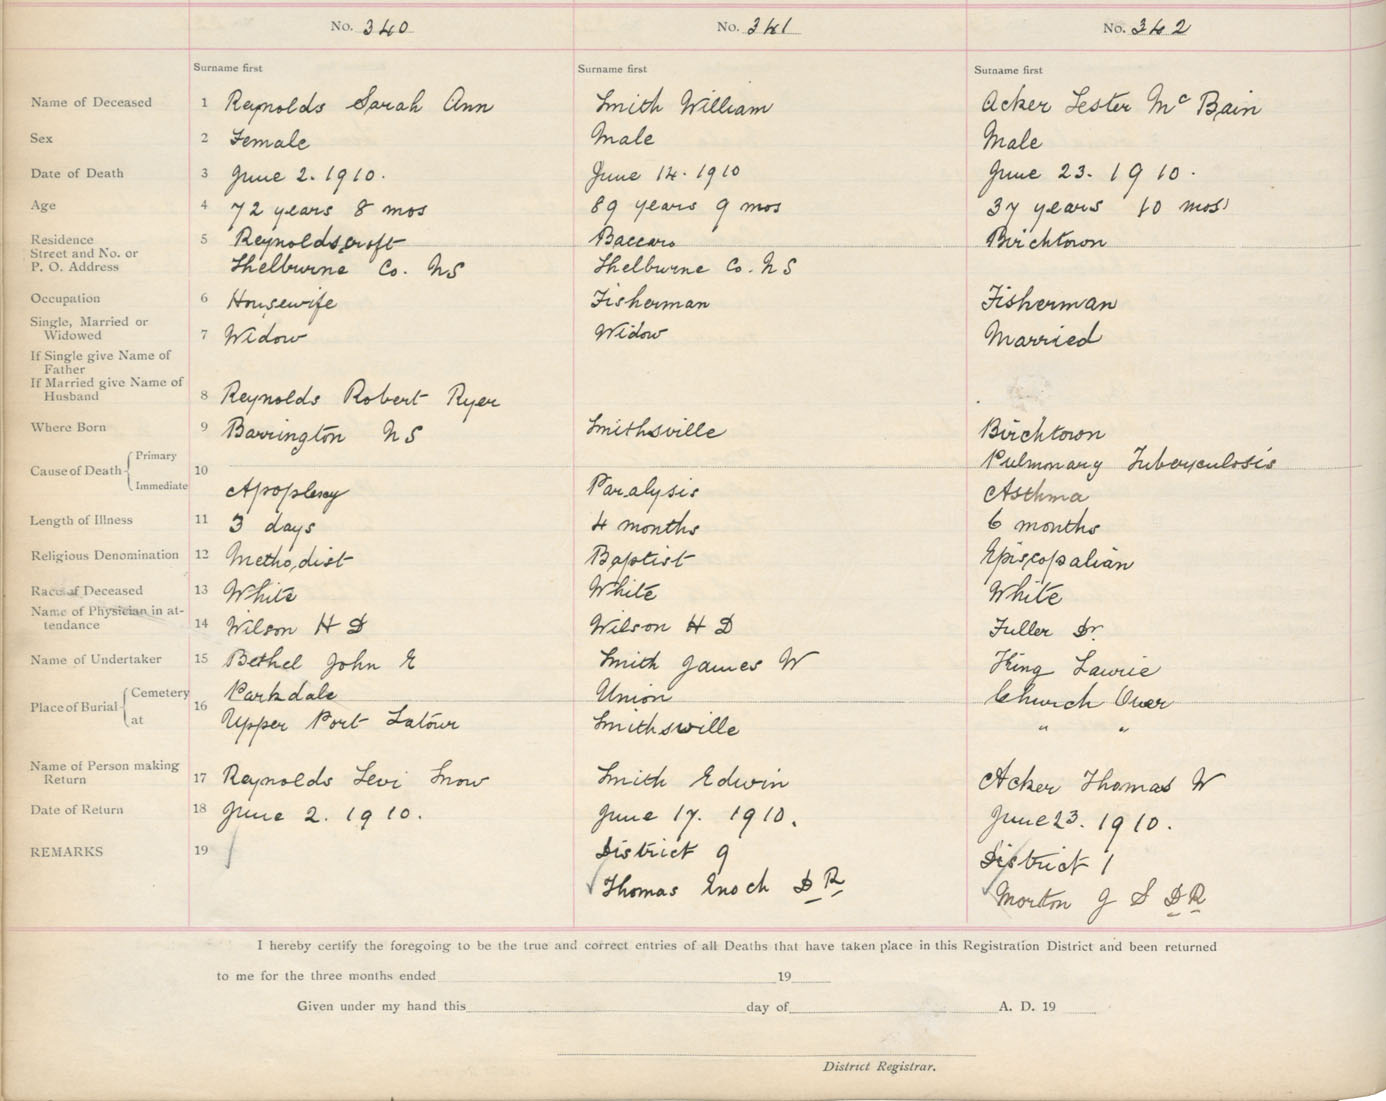 No. 340 No. 341 No. 342
Surname first Surname first Surname first
Name of Deceased 1 Reynolds Sarah Ann Smith William Acker Lester Mc Bain
Sex 2 Female Male Male
Date of Death 3 June 2. 1910. June 14. 1910 June 23. 1910.
Age 4 72 years 8 mos 89 years 9 mos 37 years 10 mos
Residence 5 Reynoldscroft Baccaro Birchtown
Street and No. or
P. O. Address Shelburne Co. NS Shelburne Co. NS
Occupation 6 Housewife Fisherman Fisherman
Single, Married or
Widowed 7 Widow Widow Married
If Single give Name of
Father
If Married give Name of
Husband 8 Reynolds Robert Ryer
Where Born 9 Barrington NS Smithsville Birchtown
Cause of Death Primary 10 Pulmonary Tuberculosis
Immediate Apoplexy Paralysis Asthma
Length of Illness 11 3 days 4 months 6 months
Religious Denomination 12 Methodist Baptist Episcopalian
Race of Deceased 13 White White White
Name of Physician in at-
tendance 14 Wilson H D Wilson H D Fuller Dr
Name of Undertaker 15 Bethel John E Smith James W King Lawrie
Place of Burial Cemetery 16 Parkdale Union Church Over
at Upper Port Latour Smithsville " "
Name of Person making
Return 17 Reynolds Levi Snow Smith Edwin Acker Thomas W
Date of Return 18 June 2. 1910. June 17. 1910. June 23. 1910.
REMARKS 19 District 9 District 1
Thomas Enoch D R Morton J S D R
I hereby certify the foregoing to be the true and correct entries of all Deaths that have taken place in this Registration District and been returned
to me for the three months ended 19
Given under my hand this day of A. D. 19
District Registrar.